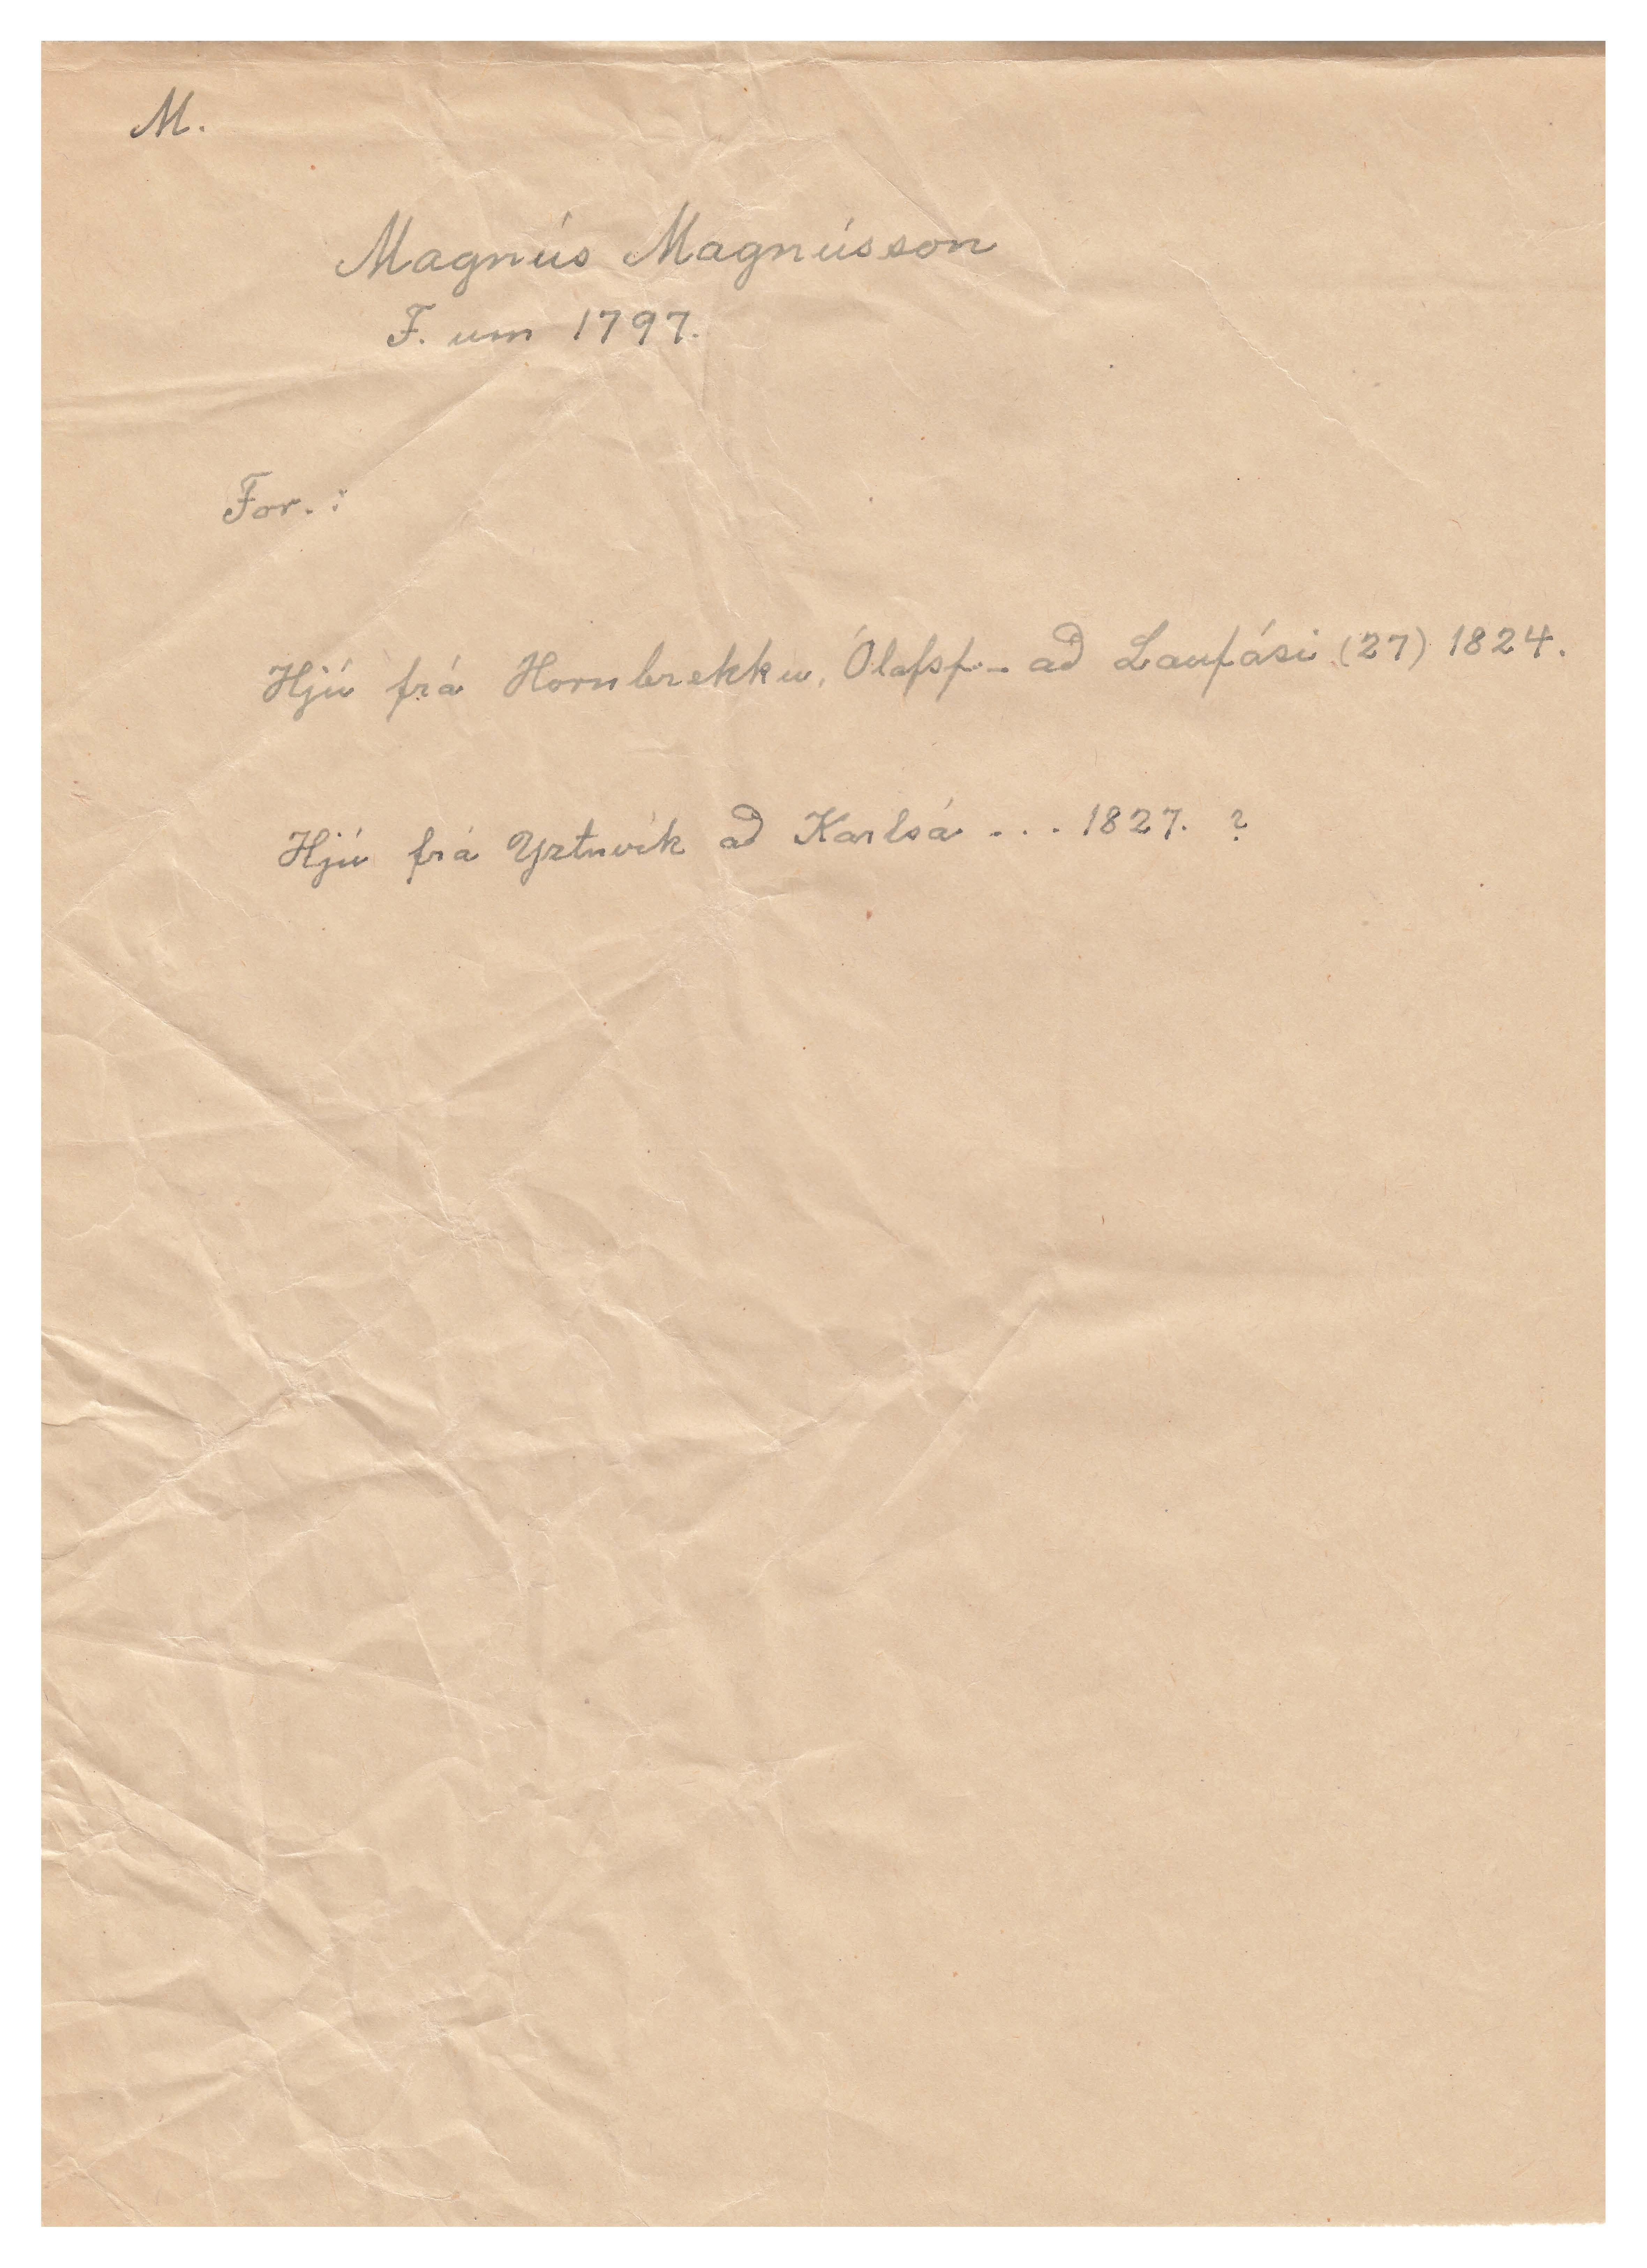 M.
Magnús Magnússon
F. um 1797.
For. :
Hjú frá Hornbrekku, Ólafsf. - að Laufási (27) 1824.
Hjú frá Yztuvík að Karlsá . . . 1827. ?